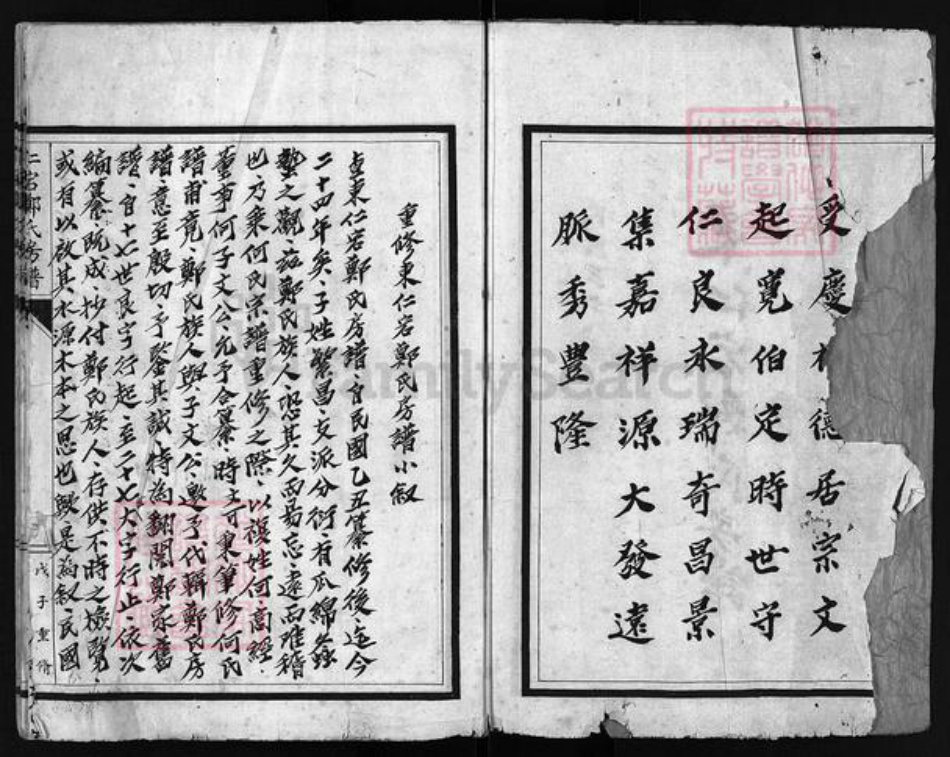 受慶 德居宗文
起寬伯定時世守
仁良永瑞奇昌景
集嘉祥源大發遠
脈秀豐隆
重修東仁宕鄭氏房譜小叙
東仁宕鄭氏房譜、自民國乙丑纂修後、迄今
二十四年矣、子姓繁昌、支派分衍、有瓜綿螽
蟄之觀、茲鄭氏族人、恐其久而易忘、遠而難稽
也、乃乘何氏宗譜重修之際、以複姓何高經
董事何子文公、允予合纂、時予可秉筆修何氏
譜甫竟、鄭氏族人與子文公、邀予代輯鄭氏房
譜、意至殷切、予鑒其誠、特為翻閱鄭家舊
譜、自十七世良字行起、至二十七大字行止、依次
編纂、既成、抄付鄭氏族人、存供不時之檢覽、
或有以啟其水源木本之思也歟、是為叙、民國
二宕鄭氏房譜
戊子重修
FamilySearch